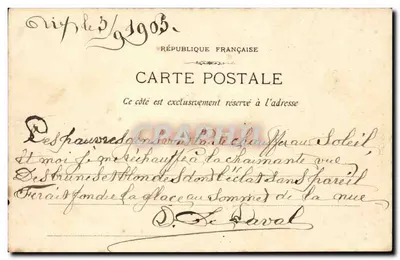 5/9 1903.
RÉPUBLIQUE FRANÇAISE
CARTE POSTALE
Ce côté est exclusivement réservé à l'adresse
Les pauvres chauffer au Soleil,
Et moi je me réchauffe à la charmante vue
Des brunes et blondes dont l'éclat sans pareil
Ferait fondre la glace au sommet de la nue
D. De Laval